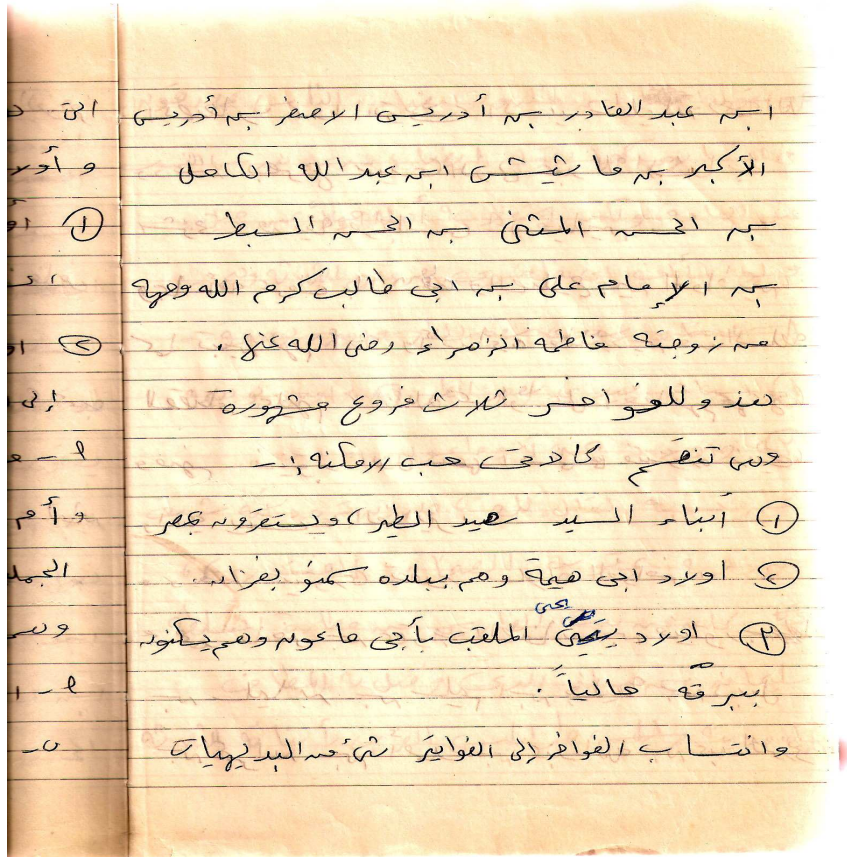 ابن عبد القادر بن أدريس الاصغر بن أدريس
الأكبر بن ماشيش ابن عبد الله الكامل
بن الحسن المثنى بن الحسن السبط
بن الإمام على بن ابى طالب كرم الله وجهه
من زوجته فاطمه الزهراء رضى الله عنها .
هذ وللفواخر ثلاث فروع مشهورة
وهى تنقسم كالاتى حسب الامكنه :-
① أبناء السيد صيد الطير، ويستقرون بمصر
② اولاد ابى هيمة وهم ببلده سمنو بفزان.
③ اولاد يحيى الملقب بأبى ماعون وهم يسكنون
ببرقه حالياً .
وانتساب الفواخر إلى الفواتير شئ من البديهيات
الى
و أولا
①
②
إلى
وأم
الجمل